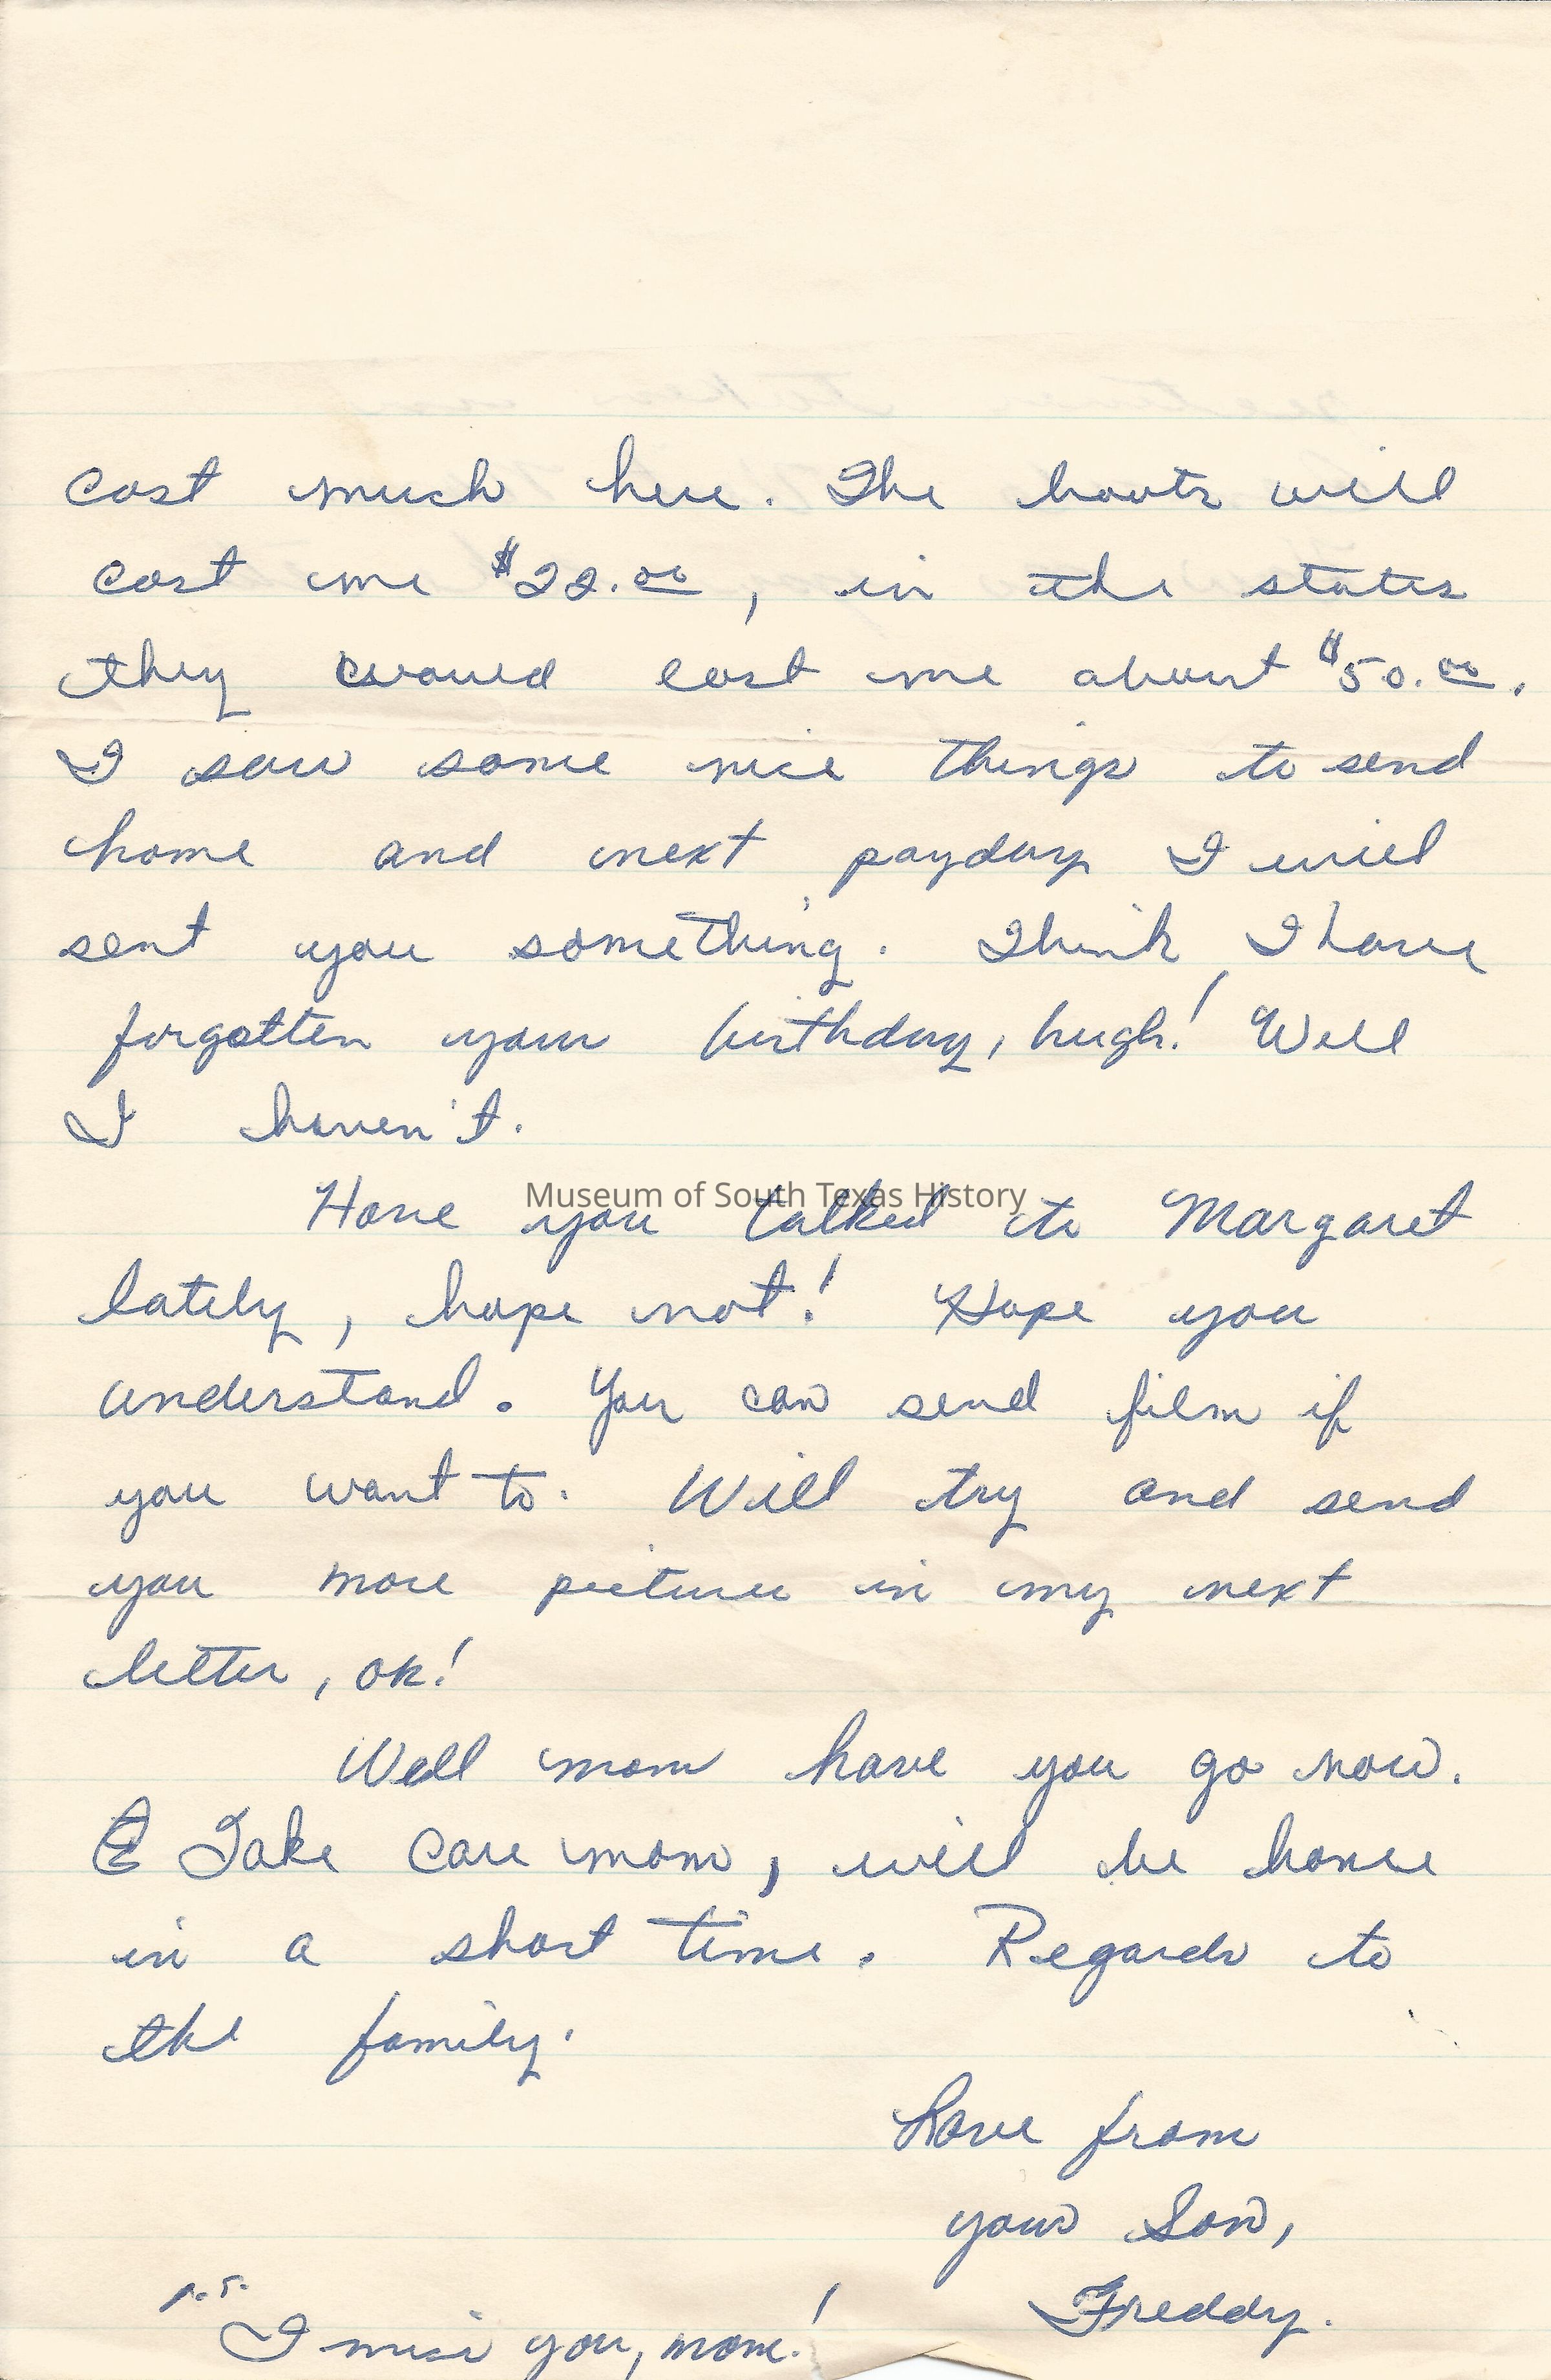 cost much here. The boots will
cost me $22.00, in the states
they would cost me about $50.00.
I saw some nice things to send
home and next payday I will
sent you something. Think I have
forgotten your birthday, hugh! Well
I haven't.
Museum of South Texas History
Have you talked to Margaret
lately, hope not! Hope you
understand. You can send film if
you want to. Will try and send
you more pictures in my next
letter, ok!
Well mom have you go now.
Take care mom, will be home
in a short time. Regards to
the family.
Love from
your Son,
Freddy.
P.S.
I miss you, mom!